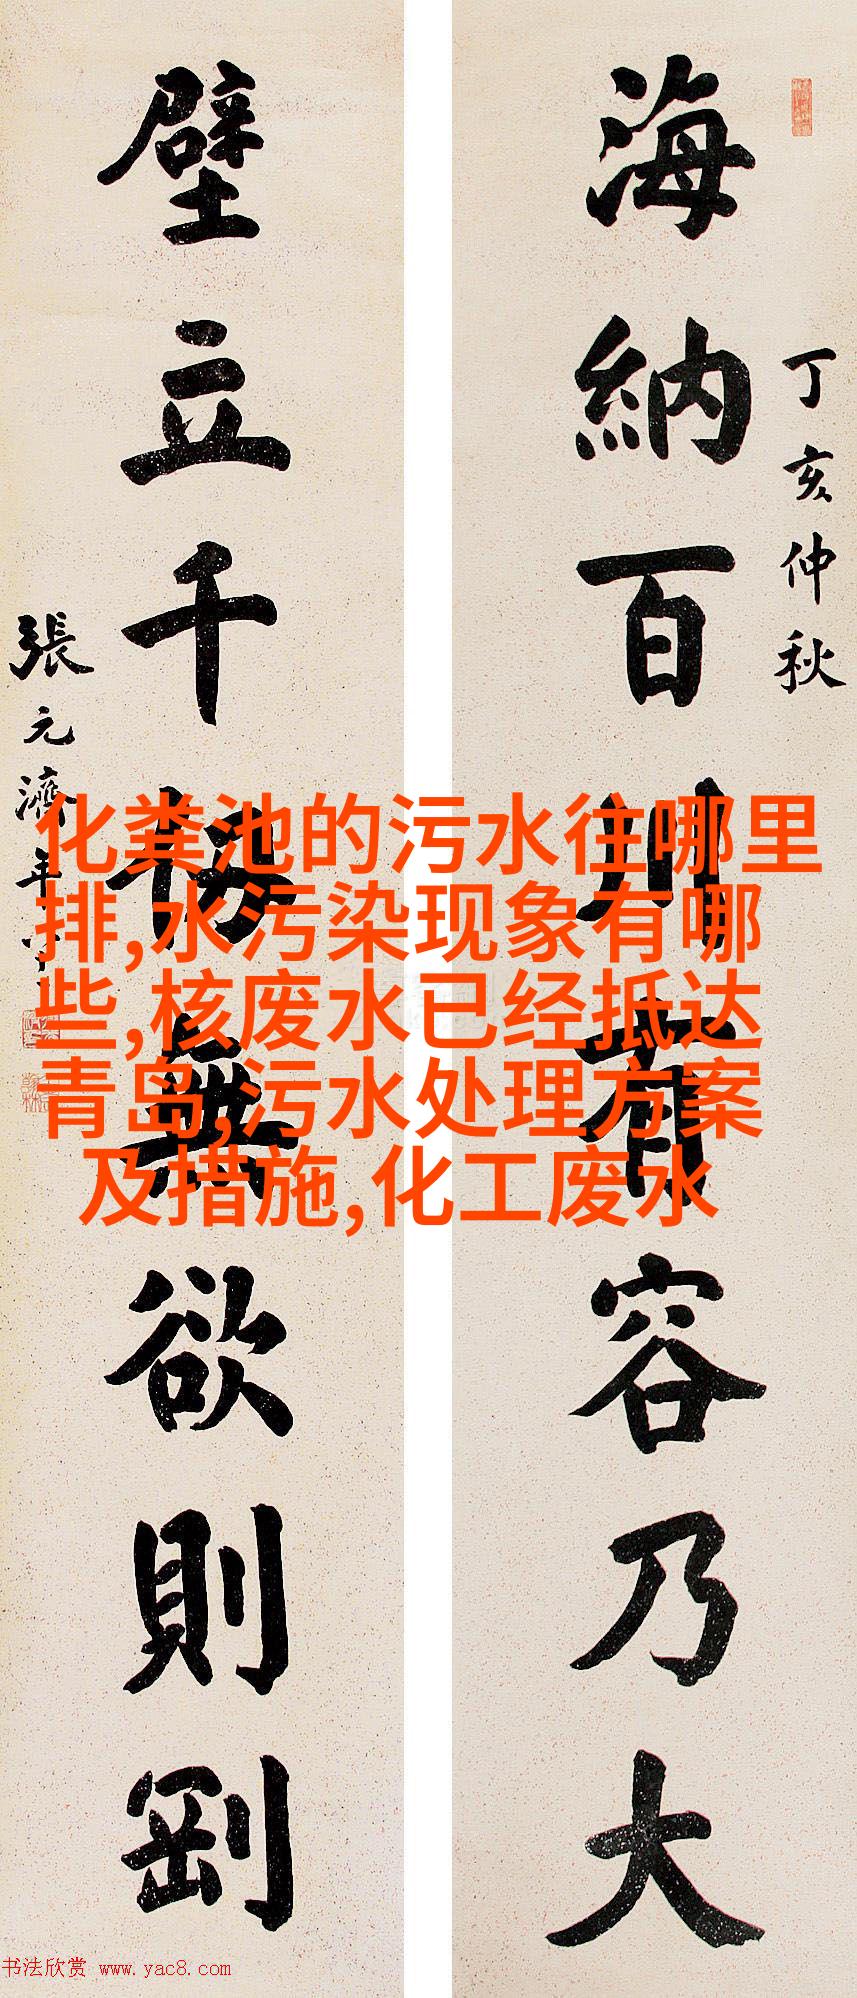 海納百川有容乃大
丁亥仲秋
壁立千仞無欲則剛
張元濟
化粪池的污水往哪里
排,水污染现象有哪
些,核废水已经抵达
青岛,污水处理方案
及措施,化工废水
书法欣赏 www.yac8.com